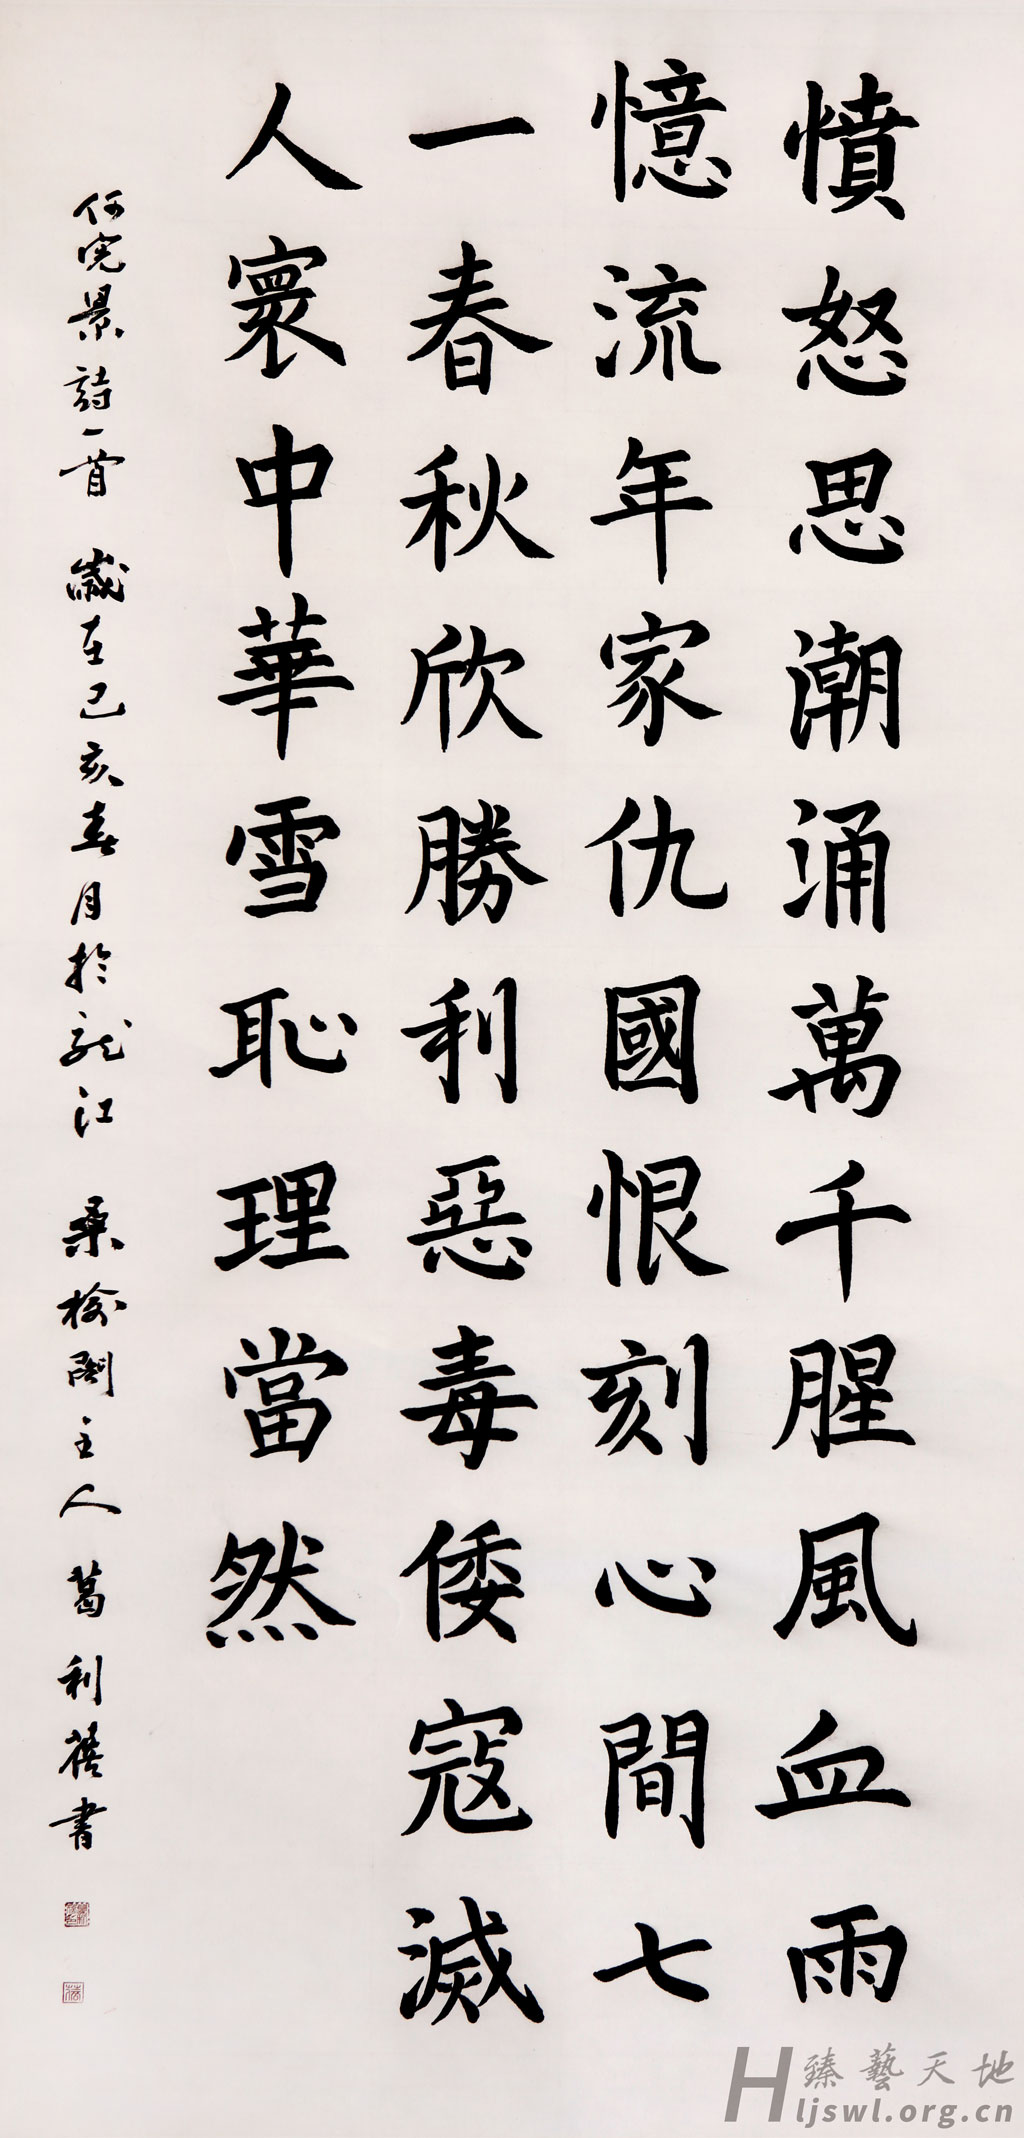 憤怒思潮涌萬千腥風血雨
憶流年家仇國恨刻心間七
一春秋欣勝利惡毒倭寇滅
人寰中華雪恥理當然
何景詩一首 歲在己亥春月於龍江 桑榆閣主人葛利蓓書
臻藝天地
Hljswl.org.cn